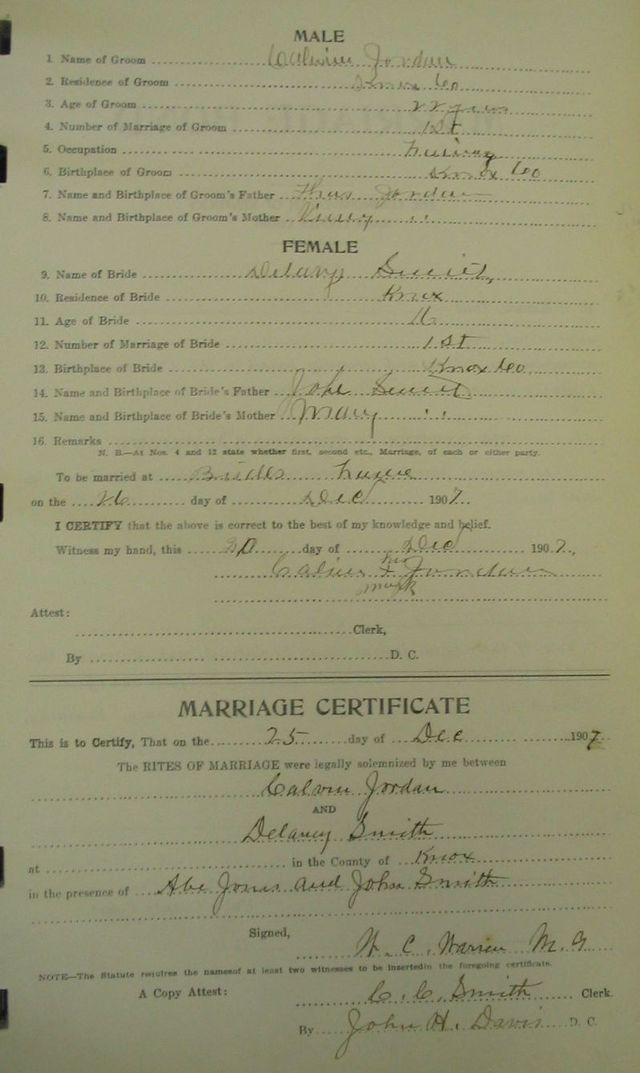 MALE
1. Name of Groom Calvin Jordan
2. Residence of Groom Knox Co
3. Age of Groom 22 years
4. Number of Marriage of Groom 1st
5. Occupation
6. Birthplace of Groom Knox Co
7. Name and Birthplace of Groom's Father Thos Jordan
8. Name and Birthplace of Groom's Mother "
FEMALE
9. Name of Bride Delany Smith
10. Residence of Bride Knox
11. Age of Bride
12. Number of Marriage of Bride 1st
13. Birthplace of Bride Knox Co
14. Name and Birthplace of Bride's Father John Smith
15. Name and Birthplace of Bride's Mother Mary "
16. Remarks
N. B.—At Nos. 4 and 12 state whether first, second etc., Marriage, of each or either party.
To be married at Brides
on the 26 day of Dec 1907
I CERTIFY that the above is correct to the best of my knowledge and belief.
Witness my hand, this 20 day of Dec 1907.
Calvin his x mark Jordan
Attest:
Clerk,
By D. C.
MARRIAGE CERTIFICATE
This is to Certify, That on the 25 day of Dec 1907
The RITES OF MARRIAGE were legally solemnized by me between
Calvin Jordan
AND
Delaney Smith
at in the County of Knox
in the presence of Abe Jones and John Smith
Signed,
W. C. Warren M. G
NOTE—The Statute requires the names of at least two witnesses to be inserted in the foregoing certificate.
A Copy Attest: C. C. Smith Clerk.
By John H. Davis D. C.